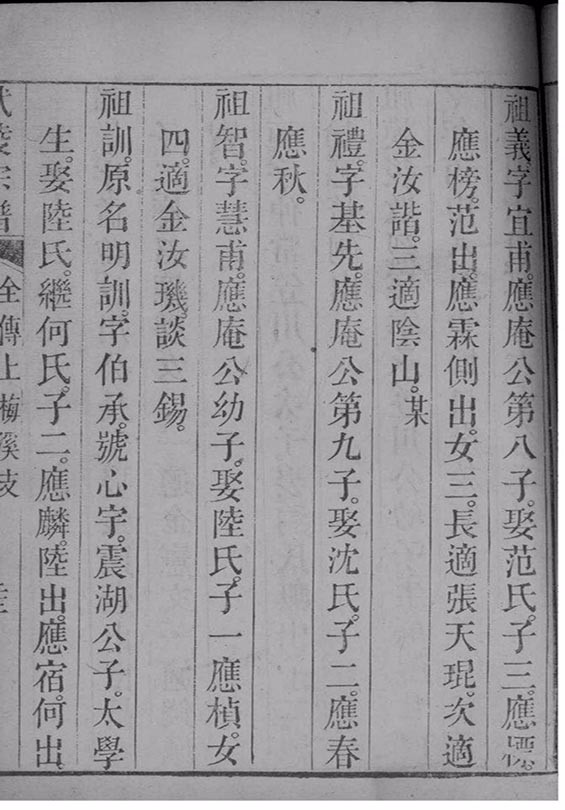 祖義字宜甫。應庵公第八子。娶范氏。子三。應標。
應榜。范出。應霖側出。女三。長適張天琨。次適
金汝諧。三適陰山。某
祖禮。字基先。應庵公第九子。娶沈氏。子二。應春
應秋。
祖智。字慧甫。應庵公幼子。娶陸氏。子一應楨。女
四。適金汝璣。談三錫。
祖訓。原名明訓。字伯承。號心宇。震湖公子。太學
生。娶陸氏。繼何氏。子二。應麟。陸出。應宿。何出
宗譜 全傳上梅溪支